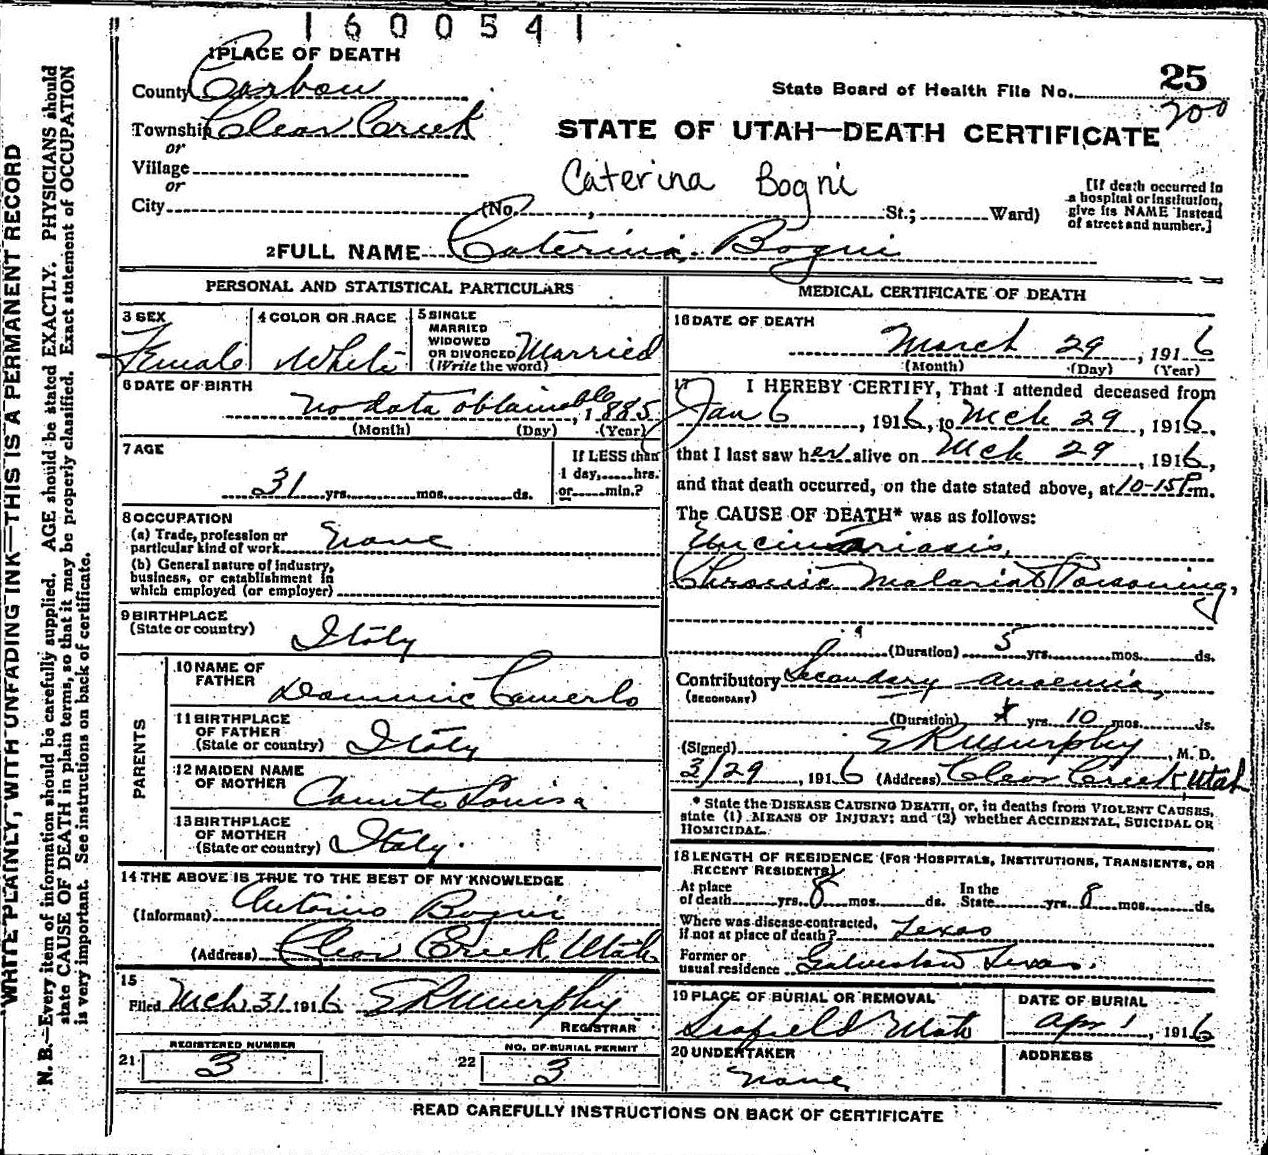 1600541
1 PLACE OF DEATH
County Carbon
Township Clear Creek
or
Village
or
City (No. , St.; Ward)
State Board of Health File No. 25
200
STATE OF UTAH—DEATH CERTIFICATE
Caterina Bogni
[If death occurred in
a hospital or institution,
give its NAME instead
of street and number.]
2 FULL NAME Caterina Bogni
PERSONAL AND STATISTICAL PARTICULARS
3 SEX
Female
4 COLOR OR RACE
White
5 SINGLE
MARRIED
WIDOWED
OR DIVORCED Married
(Write the word)
6 DATE OF BIRTH
No data obtainable, 1885
(Month) (Day) (Year)
7 AGE
31 yrs. mos. ds.
If LESS than
1 day, hrs.
or min.?
8 OCCUPATION
(a) Trade, profession or
particular kind of work None
(b) General nature of industry,
business, or establishment in
which employed (or employer)
9 BIRTHPLACE
(State or country) Italy
PARENTS
10 NAME OF
FATHER Dominic Camerlo
11 BIRTHPLACE
OF FATHER
(State or country) Italy
12 MAIDEN NAME
OF MOTHER Louisa
13 BIRTHPLACE
OF MOTHER
(State or country) Italy.
14 THE ABOVE IS TRUE TO THE BEST OF MY KNOWLEDGE
(Informant) Antonio Bogni
(Address) Clear Creek Utah
15
Filed Mch 31 1916 E R Murphy
REGISTRAR
REGISTERED NUMBER
21 3
NO. OF BURIAL PERMIT
22 3
MEDICAL CERTIFICATE OF DEATH
16 DATE OF DEATH
March 29, 1916
(Month) (Day) (Year)
17 I HEREBY CERTIFY, That I attended deceased from
Jan 6, 1916, to Mch 29, 1916,
that I last saw her alive on Mch 29, 1916,
and that death occurred, on the date stated above, at 10-15 P.m.
The CAUSE OF DEATH* was as follows:
Uncinariasis,
Chronic Malarial Poisoning,
(Duration) 5 yrs. mos. ds.
Contributory Secondary anaemia,
(SECONDARY)
(Duration) yrs. 10 mos. ds.
(Signed) E R Murphy, M. D.
3/29, 1916 (Address) Clear Creek Utah
* State the DISEASE CAUSING DEATH, or, in deaths from VIOLENT CAUSES,
state (1) MEANS OF INJURY; and (2) whether ACCIDENTAL, SUICIDAL OR
HOMICIDAL.
18 LENGTH OF RESIDENCE (FOR HOSPITALS, INSTITUTIONS, TRANSIENTS, OR
RECENT RESIDENTS)
At place
of death yrs. 8 mos. ds.
In the
State yrs. 8 mos. ds.
Where was disease contracted,
if not at place of death? Texas
Former or
usual residence Galveston Texas.
19 PLACE OF BURIAL OR REMOVAL
Scofield Utah
DATE OF BURIAL
Apr 1, 1916
20 UNDERTAKER
None
ADDRESS
READ CAREFULLY INSTRUCTIONS ON BACK OF CERTIFICATE
WRITE PLAINLY, WITH UNFADING INK—THIS IS A PERMANENT RECORD
N. B.—Every item of information should be carefully supplied. AGE should be stated EXACTLY. PHYSICIANS should
state CAUSE OF DEATH in plain terms, so that it may be properly classified. Exact statement of OCCUPATION
is very important. See instructions on back of certificate.